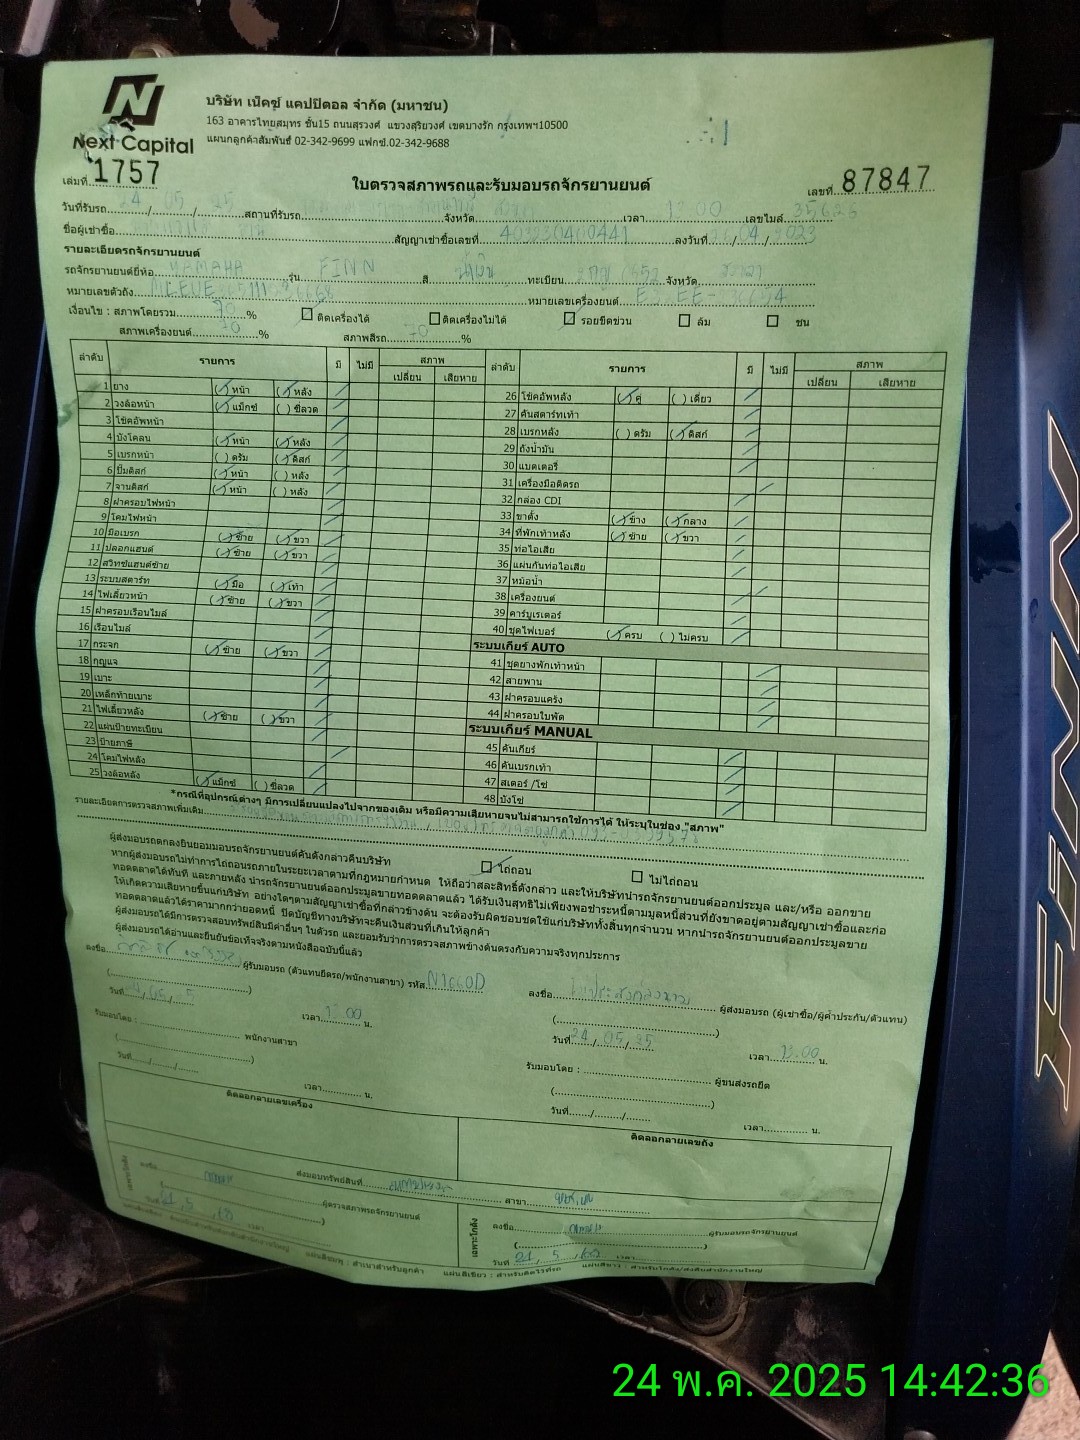 Next Capital
บริษัท เน็คซ์ แคปปิตอล จำกัด (มหาชน)
163 อาคารไทยสมุทร ชั้น15 ถนนสุรวงศ์ แขวงสุริยวงศ์ เขตบางรัก กรุงเทพฯ10500
แผนกลูกค้าสัมพันธ์ 02-342-9699 แฟกซ์.02-342-9688
เล่มที่ 1757
ใบตรวจสภาพรถและรับมอบรถจักรยานยนต์
เลขที่ 87847
วันที่รับรถ 24/05/25 สถานที่รับรถ จังหวัด เวลา 13.00 เลขไมล์
ชื่อผู้เช่าซื้อ สัญญาเช่าซื้อเลขที่ ลงวันที่ /04/2023
รายละเอียดรถจักรยานยนต์
รถจักรยานยนต์ยี่ห้อ YAMAHA รุ่น FINN สี น้ำเงิน ทะเบียน จังหวัด
หมายเลขตัวถัง หมายเลขเครื่องยนต์
เงื่อนไข : สภาพโดยรวม 70 % ติดเครื่องได้ ติดเครื่องไม่ได้ รอยขีดข่วน ล้ม ชน
สภาพเครื่องยนต์ 70 % สภาพสีรถ 70 %
ลำดับ รายการ มี ไม่มี สภาพ เปลี่ยน เสียหาย ลำดับ รายการ มี ไม่มี สภาพ เปลี่ยน เสียหาย
1 ยาง (/) หน้า (/) หลัง
2 วงล้อหน้า (/) แม็กซ์ ( ) ซี่ลวด
3 โช้คอัพหน้า
4 บังโคลน (/) หน้า (/) หลัง
5 เบรกหน้า ( ) ดรัม (/) ดิสก์
6 ปั๊มดิสก์ (/) หน้า ( ) หลัง
7 จานดิสก์ (/) หน้า ( ) หลัง
8 ฝาครอบไฟหน้า
9 โคมไฟหน้า
10 มือเบรก (/) ซ้าย (/) ขวา
11 ปลอกแฮนด์ (/) ซ้าย (/) ขวา
12 สวิทซ์แฮนด์ซ้าย
13 ระบบสตาร์ท (/) มือ (/) เท้า
14 ไฟเลี้ยวหน้า (/) ซ้าย (/) ขวา
15 ฝาครอบเรือนไมล์
16 เรือนไมล์
17 กระจก (/) ซ้าย (/) ขวา
18 กุญแจ
19 เบาะ
20 เหล็กท้ายเบาะ
21 ไฟเลี้ยวหลัง (/) ซ้าย (/) ขวา
22 แผ่นป้ายทะเบียน
23 ป้ายภาษี
24 โคมไฟหลัง
25 วงล้อหลัง (/) แม็กซ์ ( ) ซี่ลวด
26 โช้คอัพหลัง (/) คู่ ( ) เดี่ยว
27 คันสตาร์ทเท้า
28 เบรกหลัง ( ) ดรัม (/) ดิสก์
29 ถังน้ำมัน
30 แบตเตอรี่
31 เครื่องมือติดรถ
32 กล่อง CDI
33 ขาตั้ง (/) ข้าง (/) กลาง
34 ที่พักเท้าหลัง (/) ซ้าย (/) ขวา
35 ท่อไอเสีย
36 แผ่นกันท่อไอเสีย
37 หม้อน้ำ
38 เครื่องยนต์
39 คาร์บูเรเตอร์
40 ชุดไฟเบอร์ (/) ครบ ( ) ไม่ครบ
ระบบเกียร์ AUTO
41 ชุดยางพักเท้าหน้า
42 สายพาน
43 ฝาครอบแคร้ง
44 ฝาครอบใบพัด
ระบบเกียร์ MANUAL
45 คันเกียร์
46 คันเบรกเท้า
47 สเตอร์ /โซ่
48 บังโซ่
*กรณีที่อุปกรณ์ต่างๆ มีการเปลี่ยนแปลงไปจากของเดิม หรือมีความเสียหายจนไม่สามารถใช้การได้ ให้ระบุในช่อง "สภาพ"
รายละเอียดการตรวจสภาพเพิ่มเติม
ผู้ส่งมอบรถตกลงยินยอมมอบรถจักรยานยนต์คันดังกล่าวคืนบริษัท ไถ่ถอน ไม่ไถ่ถอน
หากผู้ส่งมอบรถไม่ทำการไถ่ถอนรถภายในระยะเวลาตามที่กฎหมายกำหนด ให้ถือว่าสละสิทธิ์ดังกล่าว และให้บริษัทนำรถจักรยานยนต์ออกประมูล และ/หรือ ออกขาย
ทอดตลาดได้ทันที และภายหลัง นำรถจักรยานยนต์ออกประมูลขายทอดตลาดแล้ว ได้รับเงินสุทธิไม่เพียงพอชำระหนี้ตามมูลหนี้ส่วนที่ยังขาดอยู่ตามสัญญาเช่าซื้อและก่อ
ให้เกิดความเสียหายขึ้นแก่บริษัท อย่างใดๆตามสัญญาเช่าซื้อที่กล่าวข้างต้น จะต้องรับผิดชอบชดใช้แก่บริษัททั้งสิ้นทุกจำนวน หากนำรถจักรยานยนต์ออกประมูลขาย
ทอดตลาดแล้วได้ราคามากกว่ายอดหนี้ ปิดบัญชีทางบริษัทจะคืนเงินส่วนที่เกินให้ลูกค้า
ผู้ส่งมอบรถได้มีการตรวจสอบทรัพย์สินมีค่าอื่นๆ ในตัวรถ และยอมรับว่าการตรวจสภาพข้างต้นตรงกับความจริงทุกประการ
ผู้ส่งมอบรถได้อ่านและยืนยันข้อเท็จจริงตามหนังสือฉบับนี้แล้ว
ลงชื่อ ผู้รับมอบรถ (ตัวแทนยึดรถ/พนักงานสาขา) รหัส
ลงชื่อ ผู้ส่งมอบรถ (ผู้เช่าซื้อ/ผู้ค้ำประกัน/ตัวแทน)
วันที่ เวลา 13.00 น.
วันที่ 24/05/25 เวลา 13.00 น.
รับมอบโดย : พนักงานสาขา
รับมอบโดย : ผู้ขนส่งรถยึด
วันที่ / / เวลา น.
วันที่ / / เวลา น.
ติดลอกลายเลขเครื่อง
ติดลอกลายเลขถัง
เฉพาะโกดัง
ลงชื่อ ส่งมอบทรัพย์สินที่ สาขา
ผู้ตรวจสภาพรถจักรยานยนต์
วันที่ เวลา
เฉพาะโกดัง
ลงชื่อ ผู้รับมอบรถจักรยานยนต์
วันที่ เวลา
แผ่นสีชมพู : สำเนาสำหรับลูกค้า แผ่นสีเขียว : สำหรับติดไว้ที่รถ
FINN
24 พ.ค. 2025 14:42:36